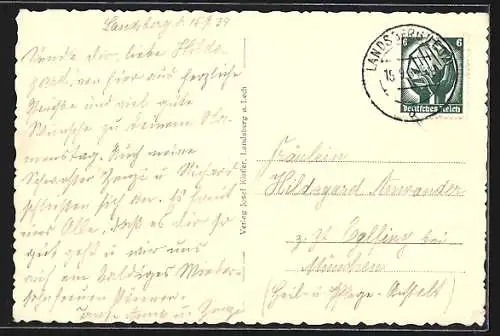 Landsberg d. 15/9 34
Sende dir, liebe Hilde-
gard, von hier aus herzliche
Grüße und viel gute
Wünsche zu deinem Na-
menstag. Auch meine
Schwester und Richard
schließen sich an. Es freut
uns Alle, daß es dir so
gut geht u. wir uns
auf ein baldiges Wieder-
sehen freuen können.
Verlag Josef Kürfer, Landsberg a. Lech
LANDSBERG (LECH)
6 6
Deutsches Reich
Fräulein
Hildegard Neusander
z. Zt. Eglfing bei
München
(Heil- u. Pflege-Anstalt)